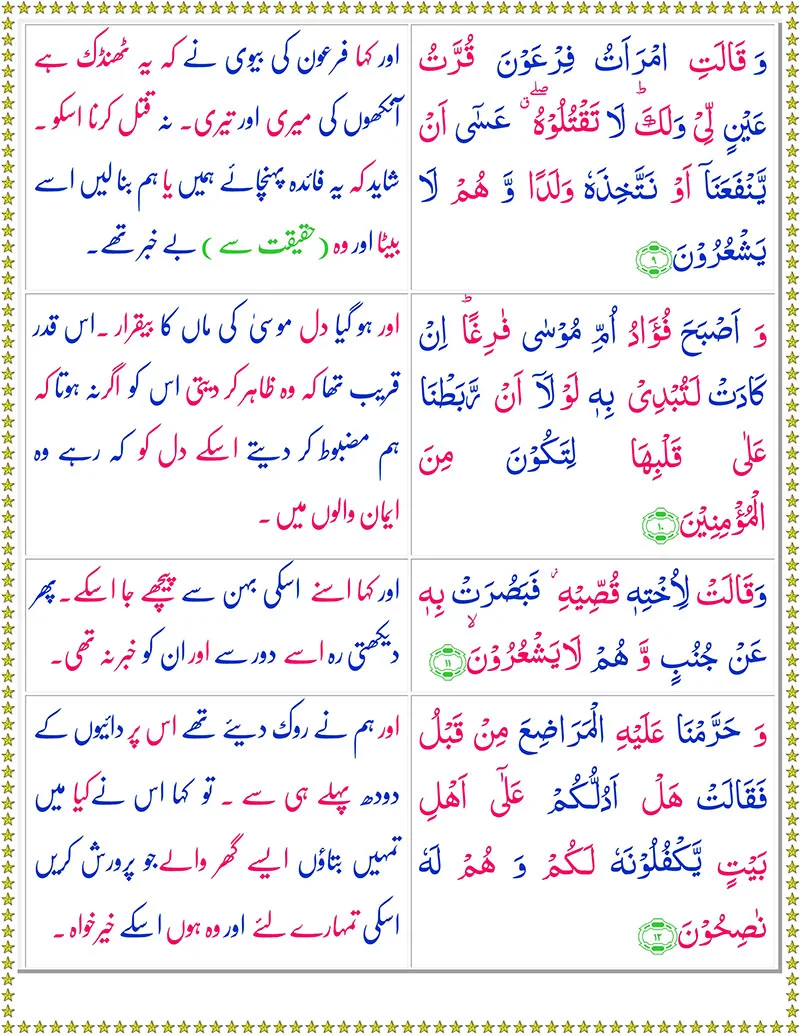 وَ قَالَتِ امْرَاَتُ فِرْعَوْنَ قُرَّتُ
عَیْنٍ لِّیْ وَلَكَ ؕ لَا تَقْتُلُوْهُ ۖۗ عَسٰۤی اَنْ
یَّنْفَعَنَاۤ اَوْ نَتَّخِذَهٗ وَلَدًا وَّ هُمْ لَا
یَشْعُرُوْنَ ۹
اور کہا فرعون کی بیوی نے کہ یہ ٹھنڈک ہے
آنکھوں کی میری اور تیری۔ نہ قتل کرنا اسکو ۔
شاید کہ یہ فائدہ پہنچائے ہمیں یا ہم بنا لیں اسے
بیٹا اور وہ (حقیقت سے ) بے خبر تھے۔
وَ اَصْبَحَ فُؤَادُ اُمِّ مُوْسٰی فٰرِغًا ؕ اِنْ
كَادَتْ لَتُبْدِیْ بِهٖ لَوْ لَاۤ اَنْ رَّبَطْنَا
عَلٰی قَلْبِهَا لِتَكُوْنَ مِنَ
الْمُؤْمِنِیْنَ ۱۰
اور ہو گیا دل موسیٰ کی ماں کا بیقرار ۔اس قدر
قریب تھا کہ وہ ظاہر کر دیتی اس کو اگر نہ ہوتا کہ
ہم مضبوط کر دیتے اسکے دل کو کہ رہے وہ
ایمان والوں میں ۔
وَقَالَتْ لِاُخْتِهٖ قُصِّیْهِ ؗ فَبَصُرَتْ بِهٖ
عَنْ جُنُبٍ وَّ هُمْ لَا یَشْعُرُوْنَ ۙ ۱۱
اور کہا اسنے اسکی بہن سے پیچھے جا اسکے۔ پھر
دیکھتی رہ اسے دور سے اور ان کو خبر نہ تھی۔
وَ حَرَّمْنَا عَلَیْهِ الْمَرَاضِعَ مِنْ قَبْلُ
فَقَالَتْ هَلْ اَدُلُّكُمْ عَلٰۤی اَهْلِ
بَیْتٍ یَّكْفُلُوْنَهٗ لَكُمْ وَ هُمْ لَهٗ
نٰصِحُوْنَ ۱۲
اور ہم نے روک دیئے تھے اس پر دائیوں کے
دودھ پہلے ہی سے ۔ تو کہا اس نے کیا میں
تمہیں بتاؤں ایسے گھر والے جو پرورش کریں
اسکی تمہارے لئے اور وہ ہوں اسکے خیر خواہ ۔